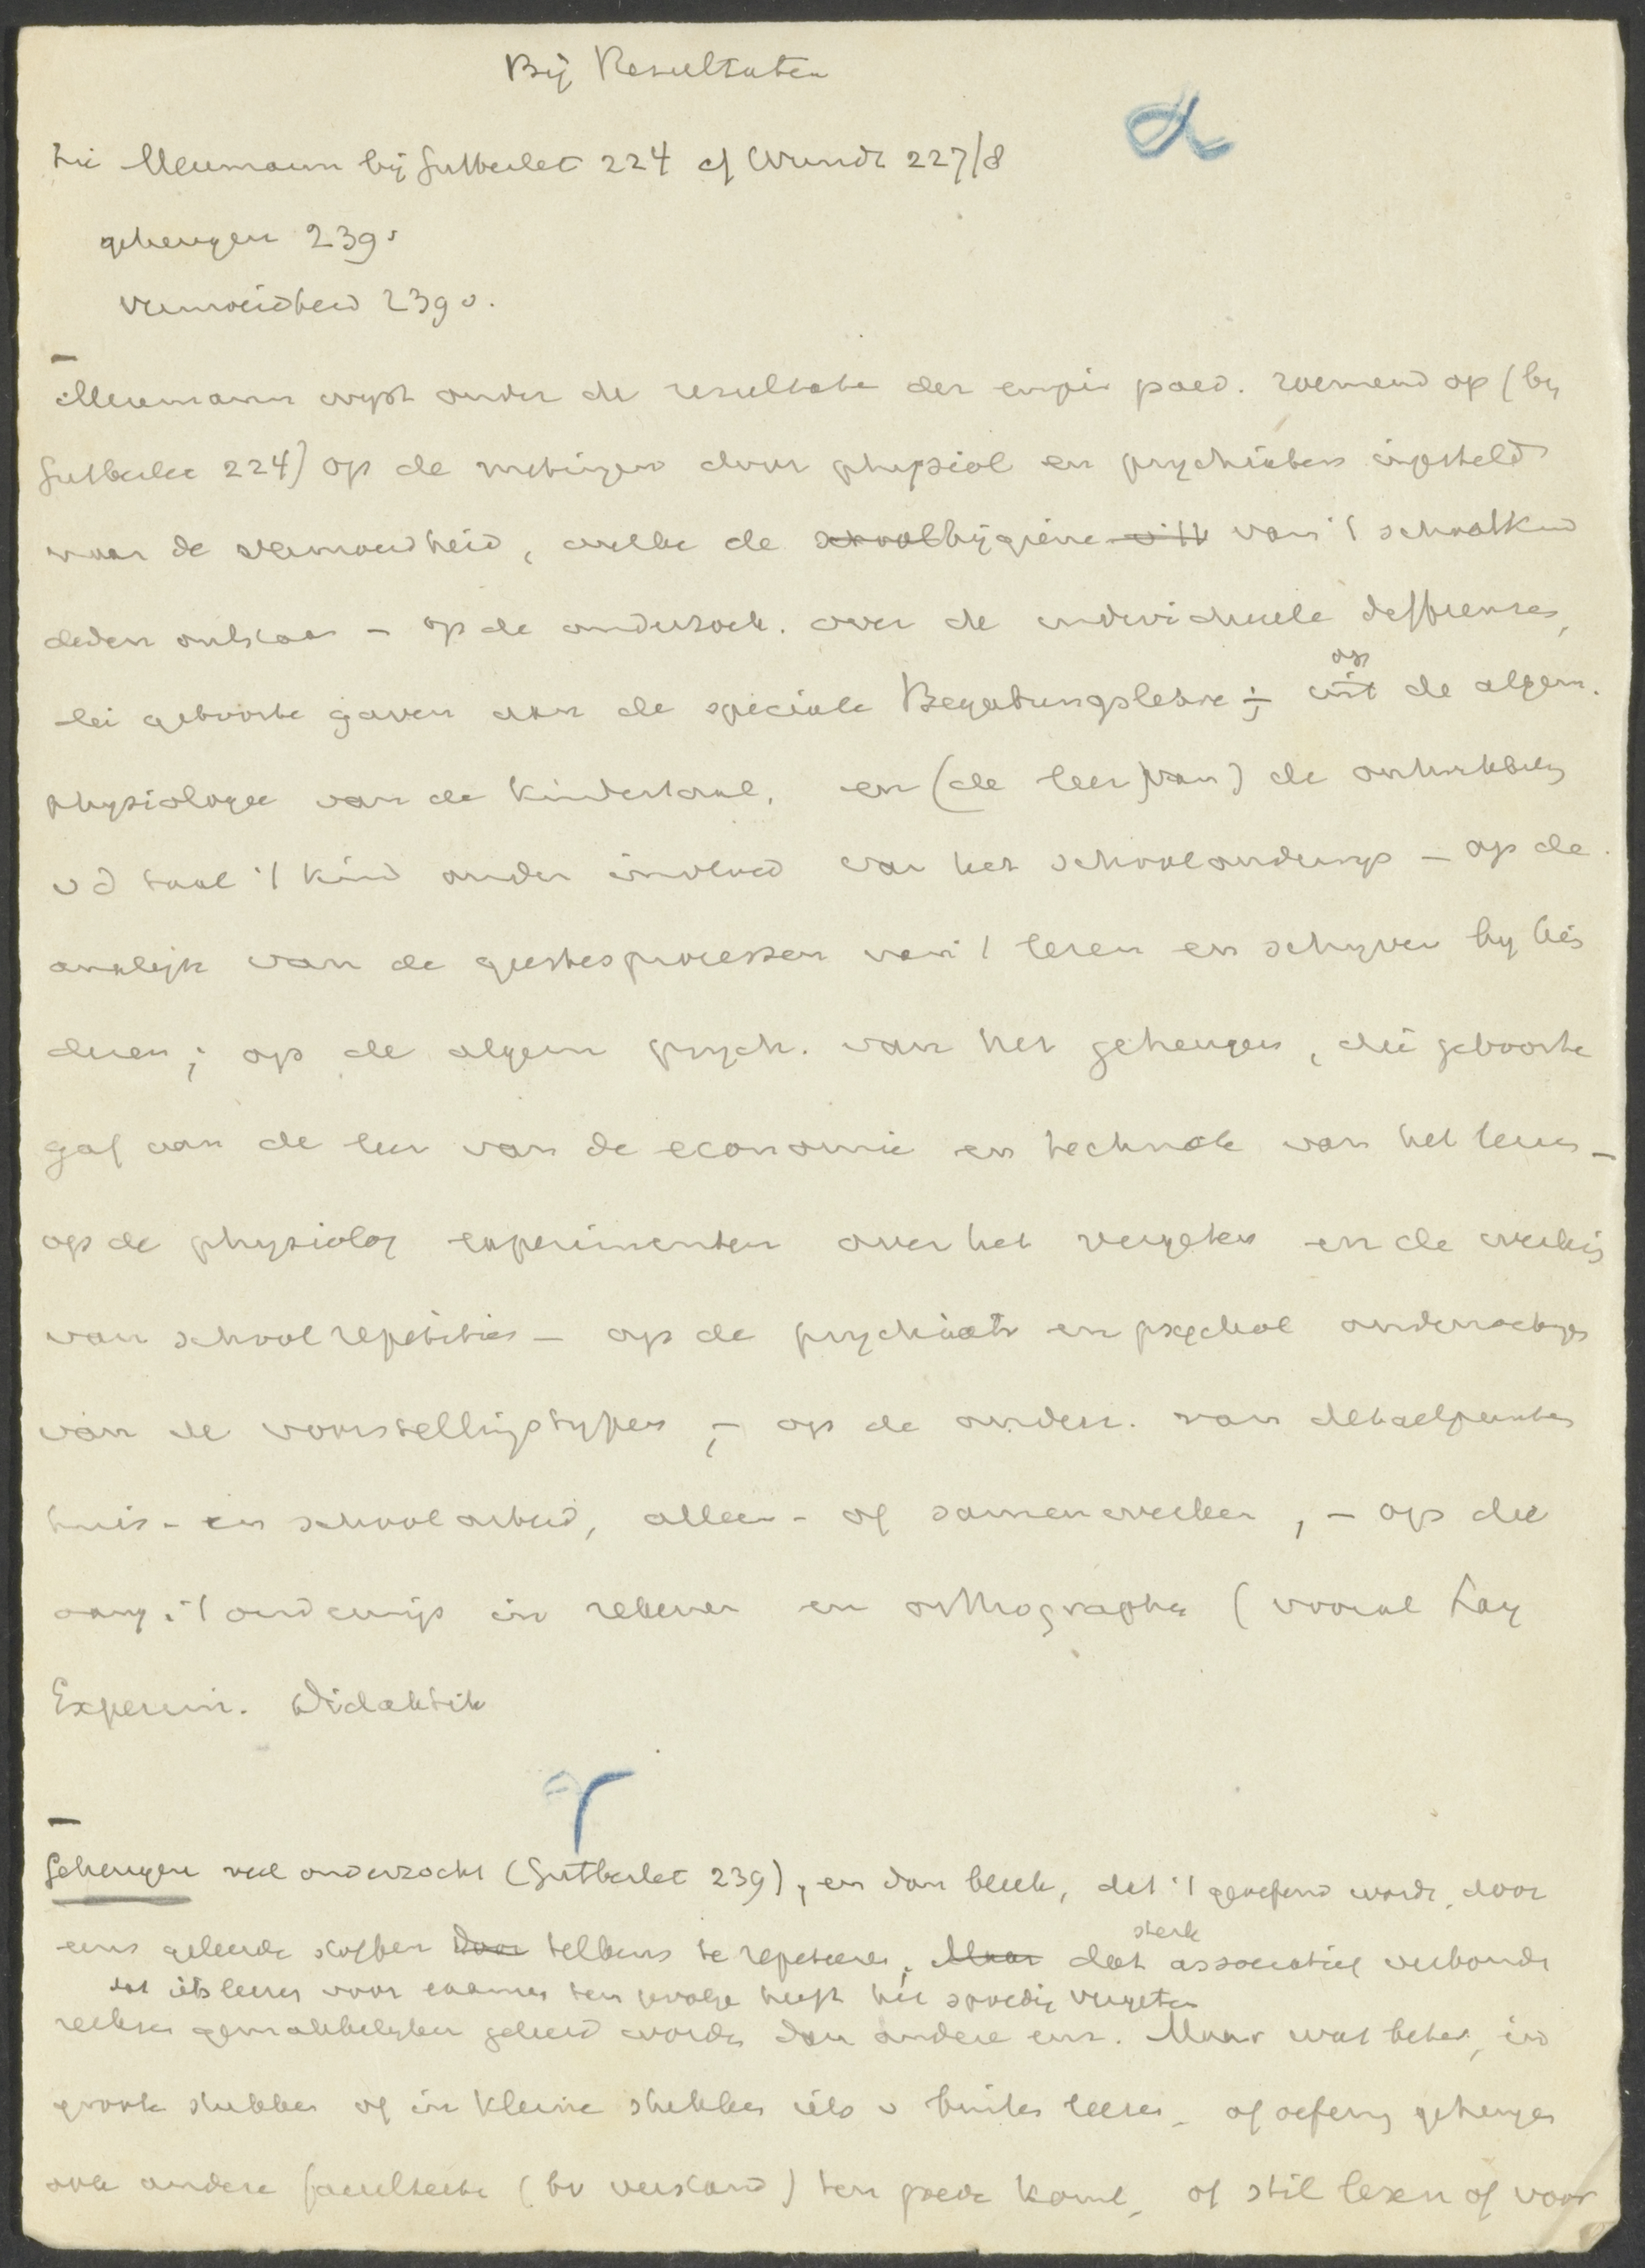 Bij Resultaten
α
zie Meumann bij Gutberlet 224 cf Wundt 227/8
geheugen 239 v
vermoeidheid 239 v.
Meumann wijst onder de resultate der empir paed. roemend op (bij
Gutberlet 224) op de metingen door physiol en psychiaters ingesteld
naar de vermoeidheid, welke de schoolhygiëne van 't schoolkind
deden ontstaan - op de onderzoek. over de individueele differenties,
die geboorte gaven aan de speciale Begabungslehre ; - op de algem.
physiologie van de kindertaal, en (de leer van) de ontwikkeling
v d taal 't kind onder invloed van het schoolonderwijs - op de
analyse van de geestesprocessen van 't lezen en schrijven bij kin
deren ; op de algem psych. van het geheugen, die geboorte
gaf aan de leer van de economie en techniek van het leeren -
op de physiolog experimenten over het vergeten en de werking
van school repetities - op de psychiatr en psychol onderzoekingen
van de voorstellingstypen ; - op de onderz. van detailpunten
huis- en schoolarbeid, alleen- of samenwerken, - op die
aang. 't onderwijs in rekenen en orthographie (vooral Lay
Experim. Didaktik
γ
Geheugen veel onderzocht (Gutberlet 239), en dan bleek, dat 't geoefend wordt, door
eens geleerde stoffen door telkens te repeteeren, Maar dat sterk associatief verbonden
dat iets leeren voor examen ten gevolge heeft het spoedig vergeten
reeksen gemakkelijker geleerd worden dan andere enz. Maar wat beter, in
groote stukken of in kleine stukken iets v buiten leeren - of oefening geheugen
ook andere faculteiten (bv verstand) ten goede komt, of stil lezen of voor